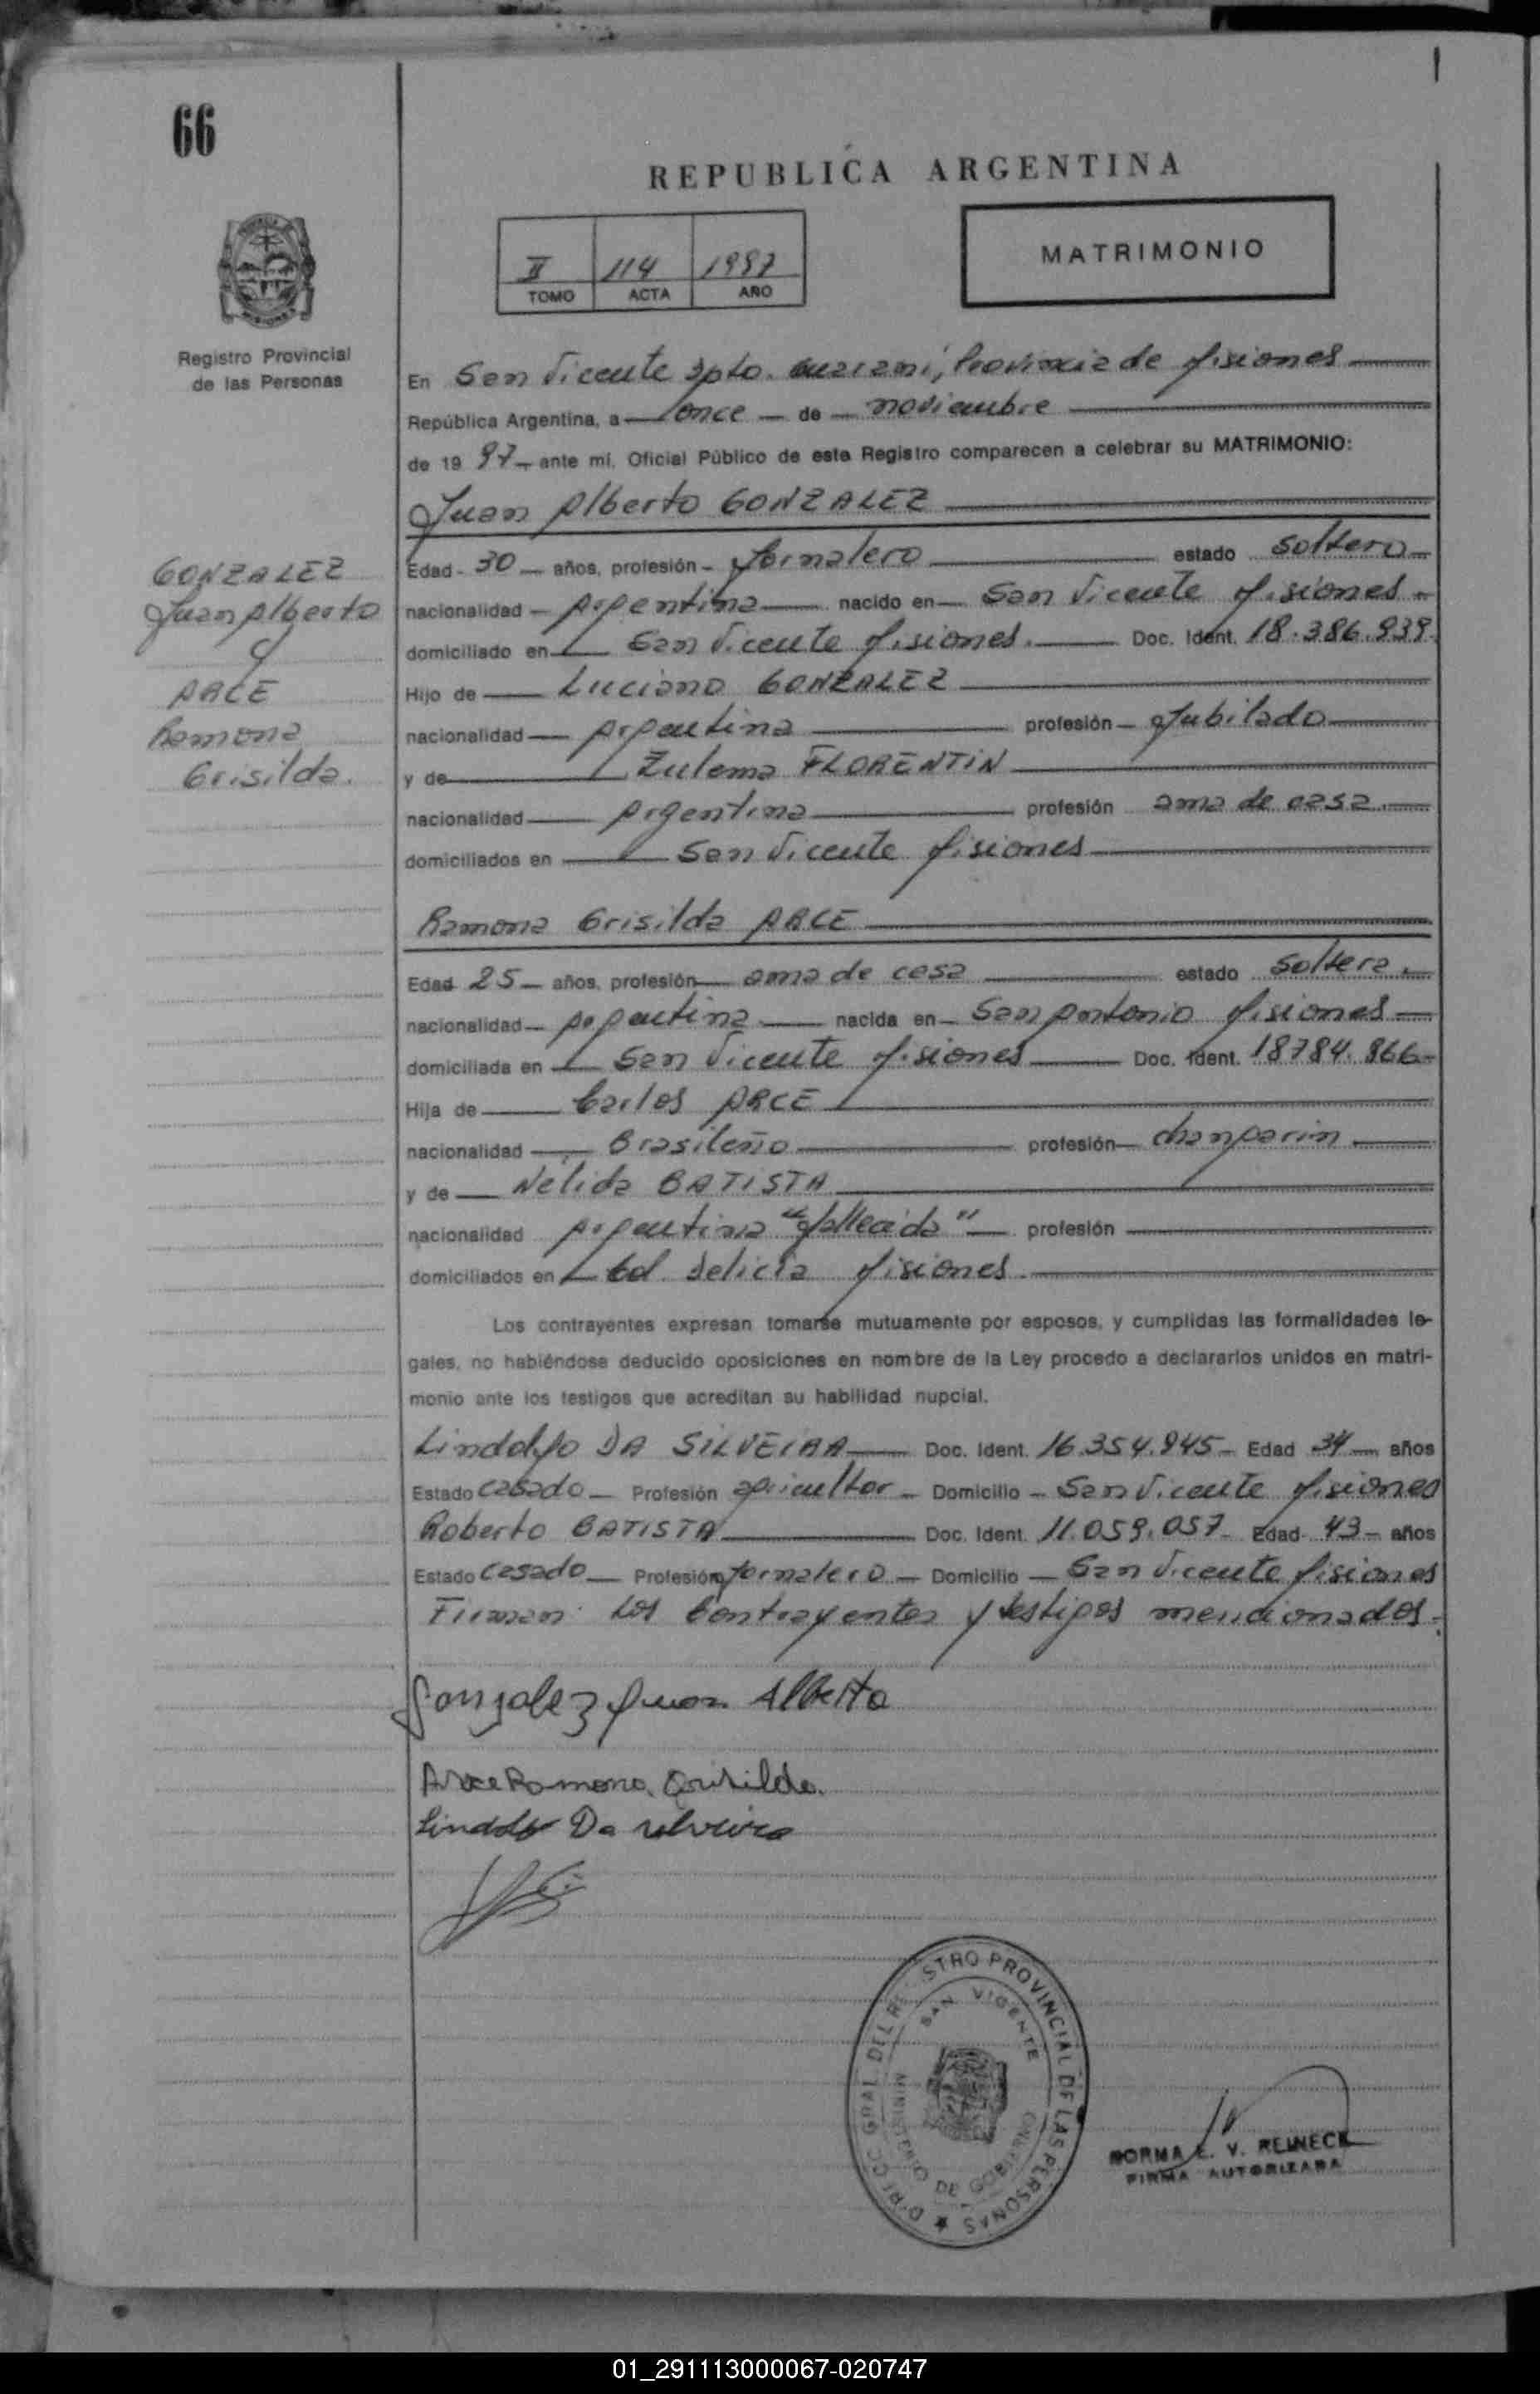 66
REPUBLICA ARGENTINA
II 114 1997
TOMO ACTA AÑO
MATRIMONIO
Registro Provincial
de las Personas
En San Vicente Dpto. Guarani, Provincia de Misiones
República Argentina, a once de noviembre
de 19 97 ante mi, Oficial Público de este Registro comparecen a celebrar su MATRIMONIO:
Juan Alberto GONZALEZ
GONZALEZ
Juan Alberto
y
ARCE
Ramona
Grisilda.
Edad 30 años, profesión Jornalero estado Soltero
nacionalidad Argentina nacido en San Vicente Misiones
domiciliado en San Vicente Misiones. Doc. Ident. 18.386.939
Hijo de Luciano GONZALEZ
nacionalidad Argentina profesión Jubilado
y de Zulema FLORENTIN
nacionalidad Argentina profesión ama de casa
domiciliados en San Vicente Misiones
Ramona Grisilda ARCE
Edad 25 años, profesión ama de casa estado Soltera
nacionalidad Argentina nacida en San Antonio Misiones
domiciliada en San Vicente Misiones Doc. Ident. 18784.866
Hija de Carlos ARCE
nacionalidad Brasileño profesión
y de Nelida BATISTA
nacionalidad Argentina "fallecida" profesión
domiciliados en Col Delicia Misiones.
Los contrayentes expresan tomarse mutuamente por esposos, y cumplidas las formalidades le-
gales, no habiéndose deducido oposiciones en nombre de la Ley procedo a declararlos unidos en matri-
monio ante los testigos que acreditan su habilidad nupcial.
Lindolfo DA SILVEIRA Doc. Ident. 16.354.945 Edad 34 años
Estado casado Profesión agricultor Domicilio San Vicente Misiones
Roberto BATISTA Doc. Ident. 11.059.057 Edad 43 años
Estado casado Profesión Jornalero Domicilio San Vicente Misiones
Firman: Los Contrayentes y testigos mencionados.
Gonzalez Juan Alberto
Arce Ramona Grisilda.
Lindolfo Da silveira
DIRECC. GRAL. DEL REGISTRO PROVINCIAL DE LAS PERSONAS
SAN VICENTE
MINISTERIO DE GOBIERNO
NORMA E. V. REINECK
FIRMA AUTORIZADA
01_291113000067-020747